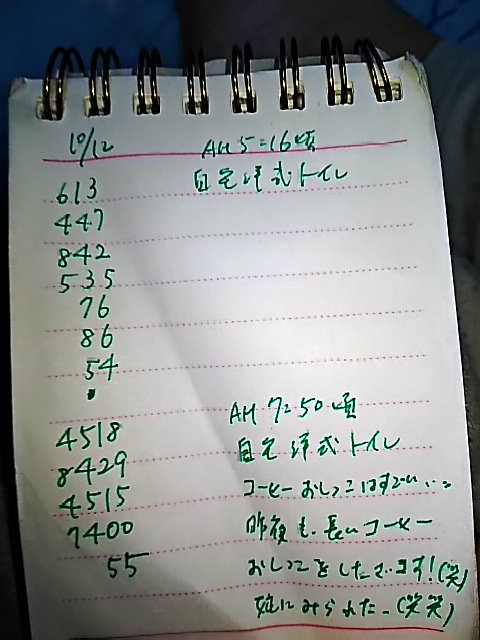 10/12 AM 5:16頃
613 自宅洋式トイレ
447
842
535
76
86
54
AM 7:50頃
4518 自宅洋式トイレ
8429
4515 コーヒーおしっこはすごい…
7400 昨夜も、長いコーヒー
55 おしっこをしたでます!(笑)
にみられた。(笑笑)